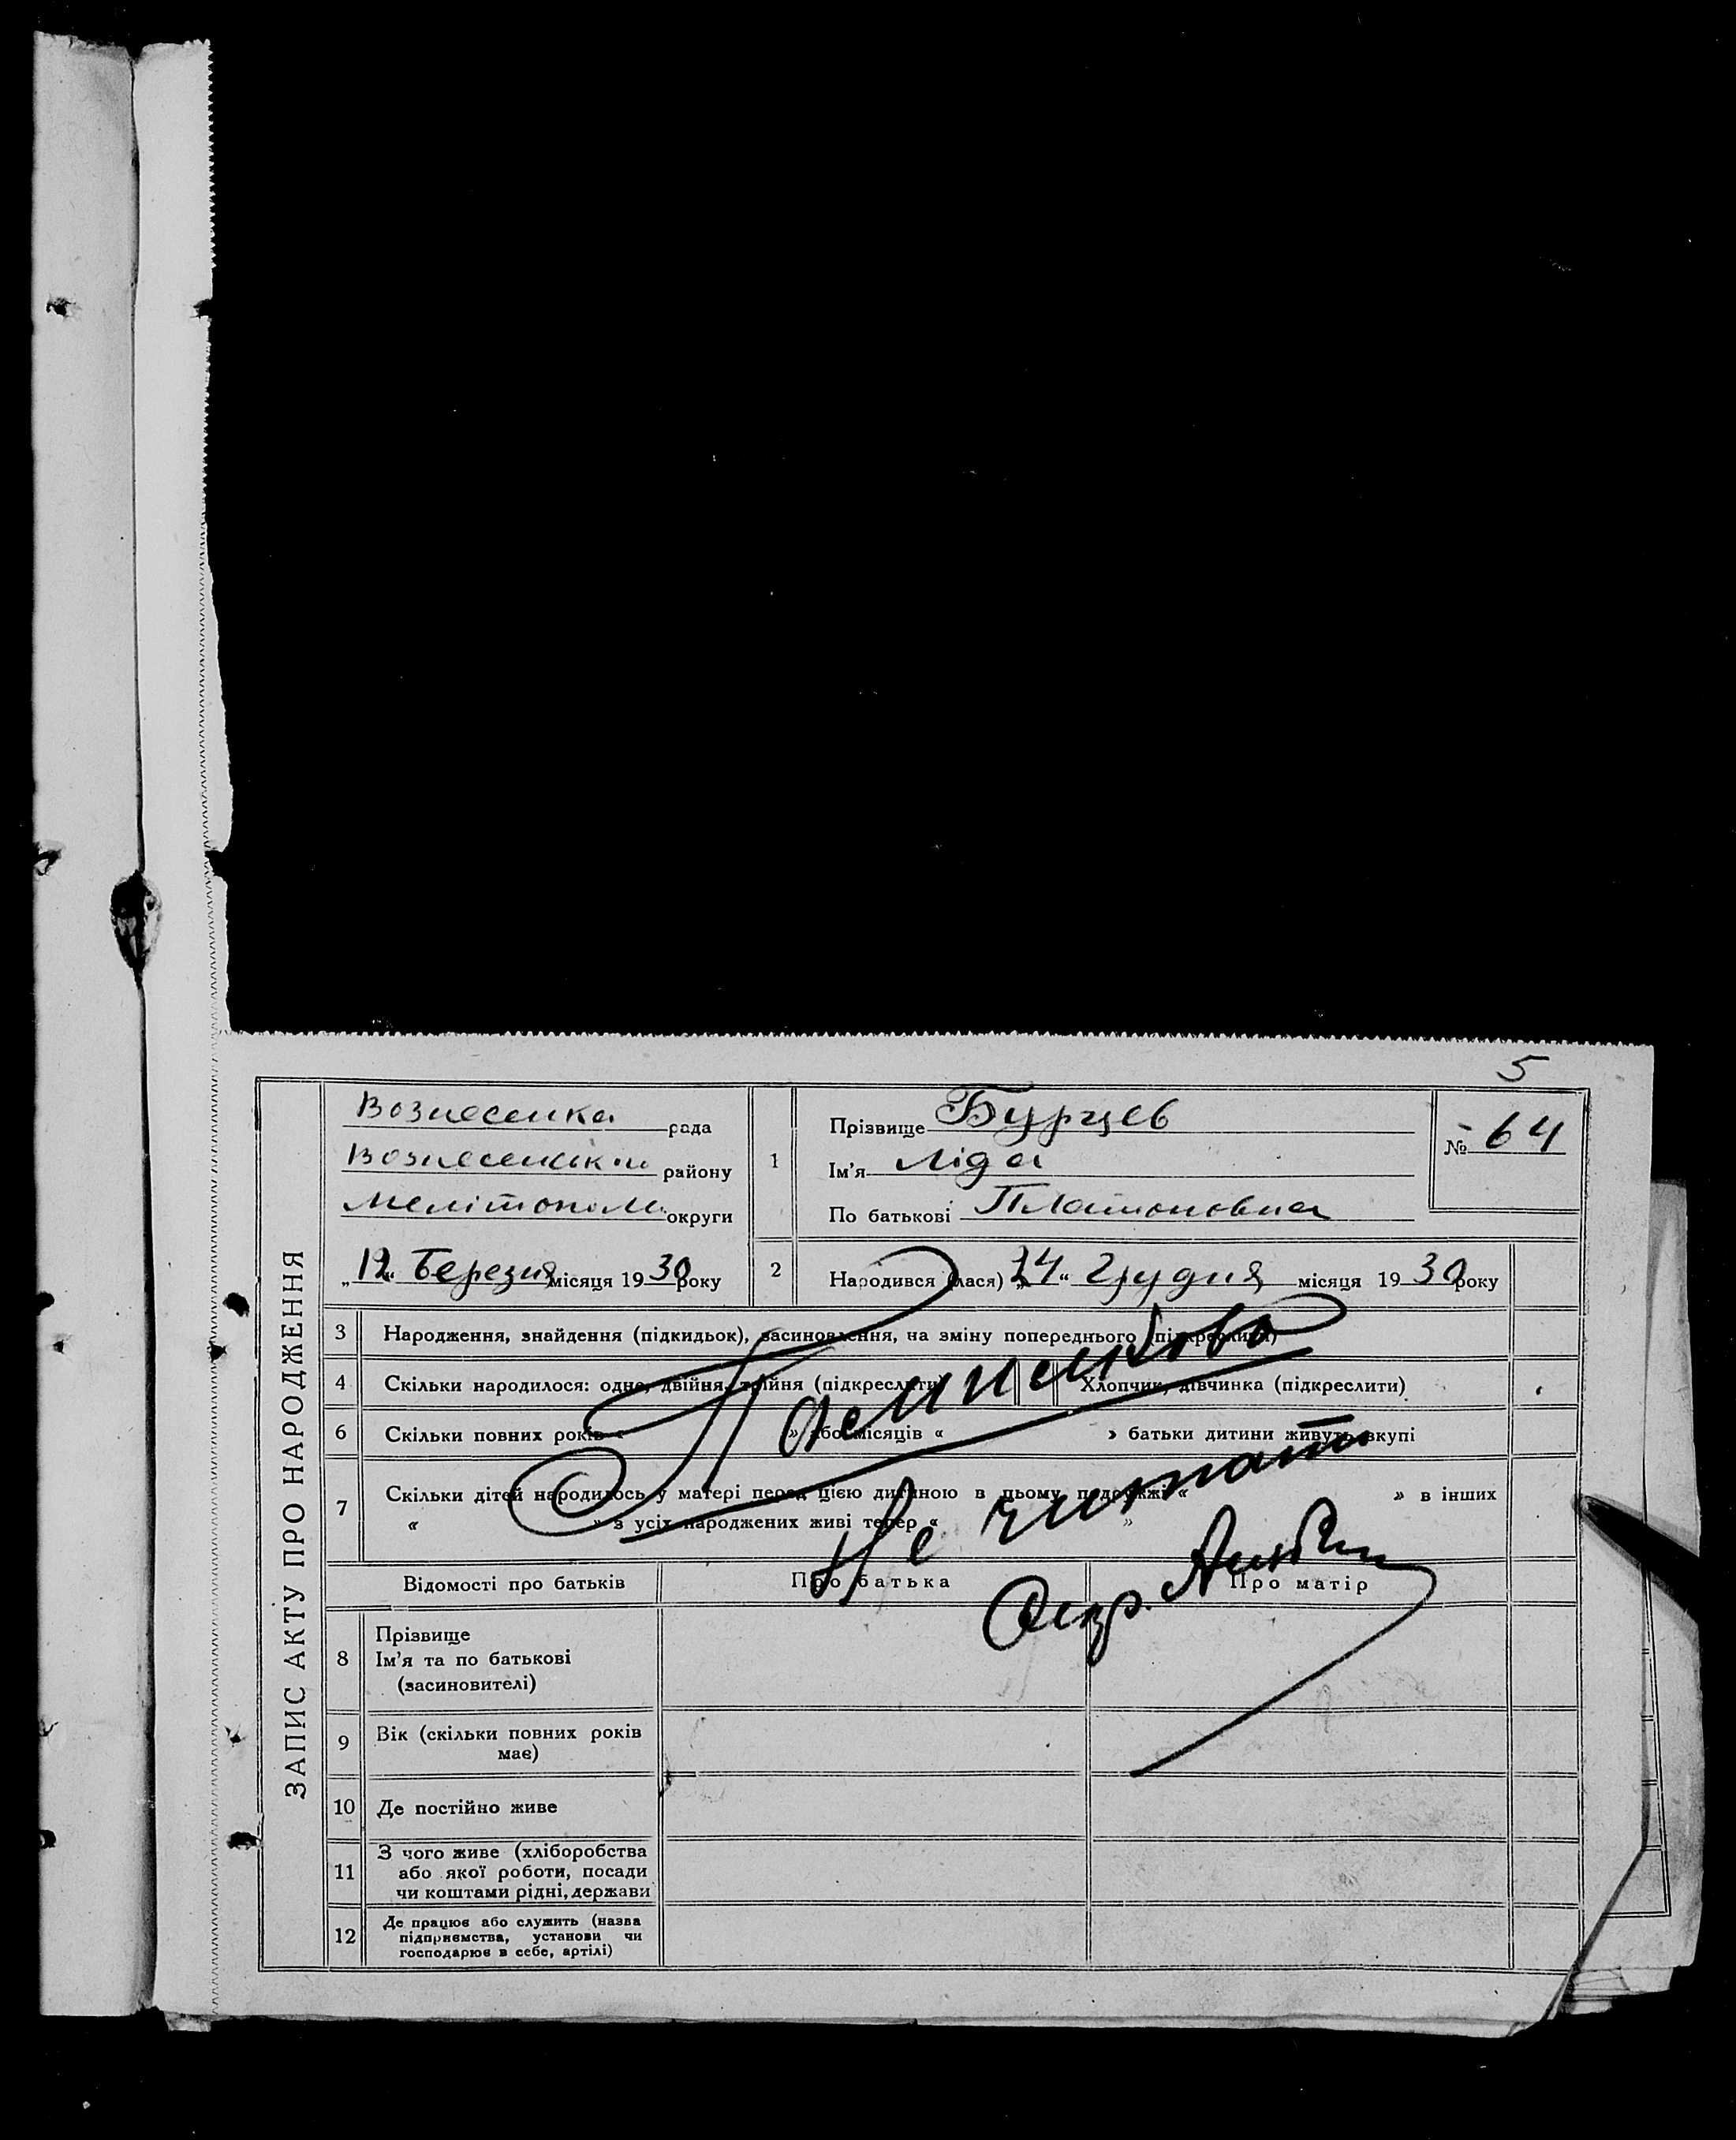 5
ЗАПИС АКТУ ПРО НАРОДЖЕННЯ
Вознесенка рада
Вознесенськ району
Мелітополь округи
„12“ Березня місяця 1930 року
1
Прізвище Бурцев
Ім'я Ліда
По батькові Платоновна
№ 64
2
Народився (лася) „24“ Грудня місяця 1930 року
3 Народження, знайдення (підкидьок), засиновлення, на зміну попереднього (підкреслити)
4 Скільки народилося: одне, двійня, трійня (підкреслити) Хлопчик, дівчинка (підкреслити)
6 Скільки повних років « » або місяців « » батьки дитини живуть вкупі
7 Скільки дітей народилось у матері перед цією дитиною в цьому подружжі « » в інших
« » з усіх народжених живі тепер « »
Помилково
Не читать
Секр.
Відомості про батьків Про батька Про матір
8 Прізвище
Ім'я та по батькові
(засиновителі)
9 Вік (скільки повних років
має)
10 Де постійно живе
11 З чого живе (хліборобства
або якої роботи, посади
чи коштами рідні, держави
12 Де працює або служить (назва
підприємства, установи чи
господарює в себе, артілі)